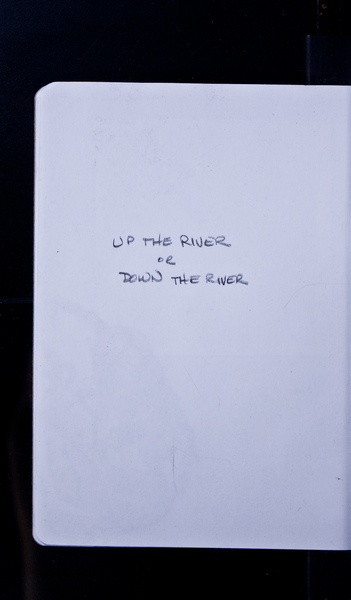 UP THE RIVER
OR
DOWN THE RIVER